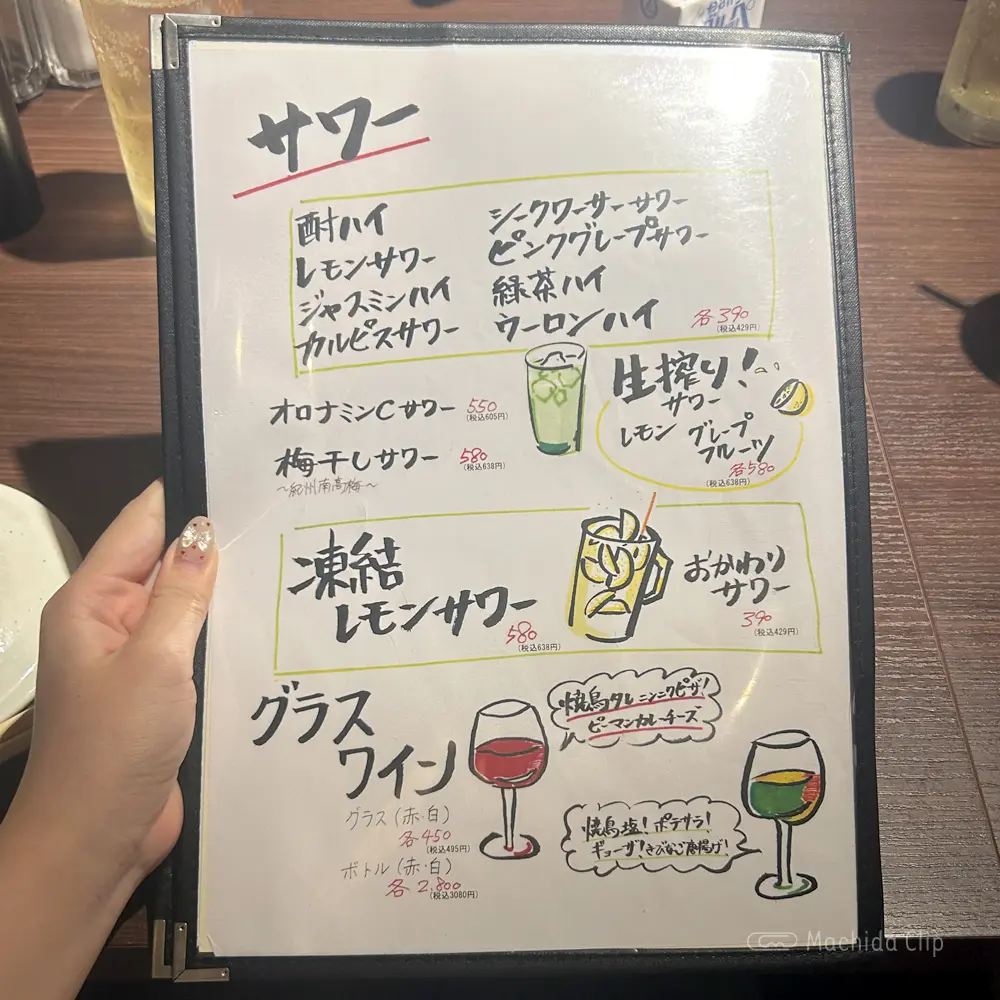 サワー
酎ハイ
レモンサワー
ジャスミンハイ
カルピスサワー
シークワーサーサワー
ピンクグレープサワー
緑茶ハイ
ウーロンハイ
各390
(税込429円)
オロナミンCサワー 550
(税込605円)
梅干しサワー 580
(税込638円)
〜紀州南高梅〜
生搾り!
サワー
レモン グレープ
フルーツ
各580
(税込638円)
凍結
レモンサワー
580
(税込638円)
おかわり
サワー
390
(税込429円)
グラス
ワイン
グラス(赤・白)
各450
(税込495円)
ボトル(赤・白)
各2,800
(税込3080円)
焼鳥タレ ニンニクピザ!
ピーマンカレーチーズ
焼鳥塩! ポテサラ!
ギョーザ! きびなご唐揚げ!
Machida Clip